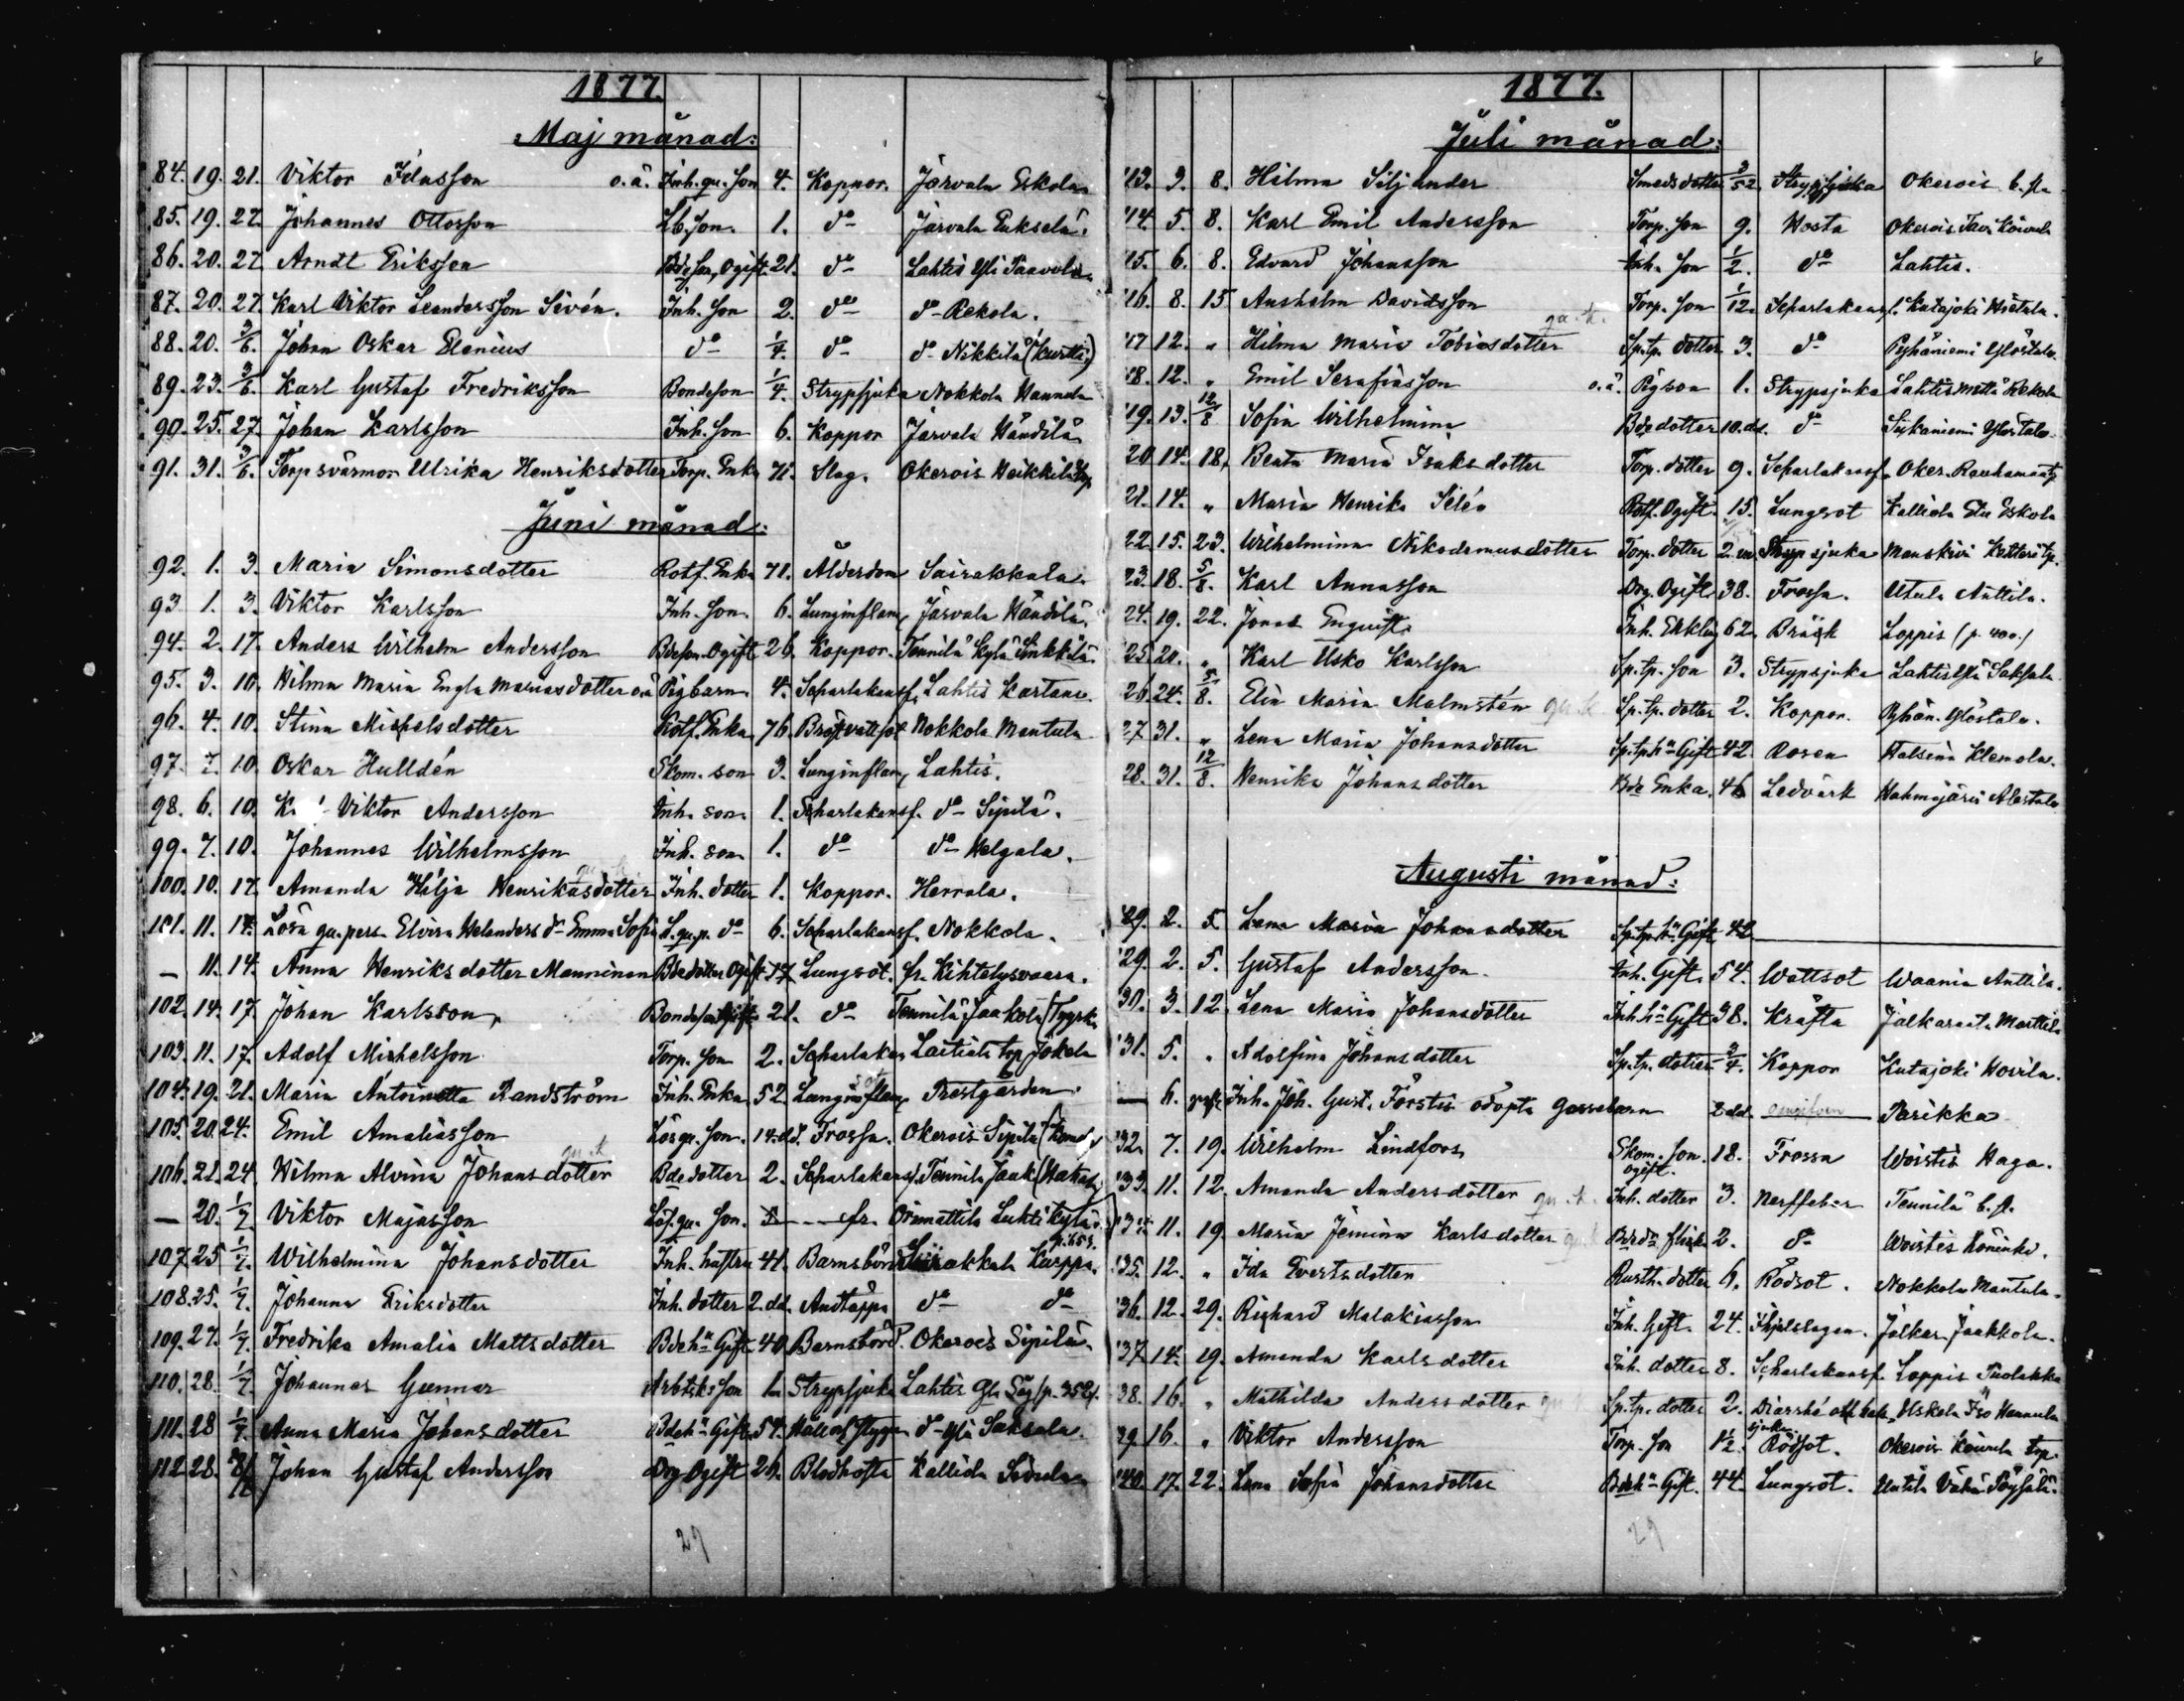 1877.
Maj månad:
84. 19. 21. Viktor Idasson o.ä. Inh. qu. son 4. Koppor. Järvala Eskola
85. 19. 27. Johannes Ottosson Lb. son. 1. do Järvala Euksela.
86. 20. 27. Arndt Eriksson Bdeson, Ogift. 21. do Lahtis Yli Paavola
87. 20. 27. Karl Viktor Leandersson Sivén. Inh. son 2. do do Rekola.
88. 20. 3/6. Johan Oskar Elenius do 1/4. do do Nikkilä (Kurtti)
89. 23. 3/6. Karl Gustaf Fredriksson Bondeson 1/4. Strypsjuka Nokkola Hannula
90. 25. 27. Johan Karlsson Inh. son 6. Koppor Järvala Händilä
91. 31. 3/6. Torpsvärmor Ulrika Henriksdotter Torp. Enka 71. Slag. Okerois Heikkilä
Juni månad:
92. 1. 3. Maria Simonsdotter Rotf. Enka 71. Ålderdom Sairakkala.
93 1. 3. Viktor Karlsson Inh. son. 6. Lunginflam Järvala Händilä.
94. 2. 17. Anders Wilhelm Andersson Bdeson. Ogift 26. Koppor. Tennilä Kylä Sinkkilä.
95. 3. 10. Hilma Maria Engla Mariasdotter o.ä. Pigbarn 4. Scharlakansf. Lahtis Kartano.
96. 4. 10. Stina Michelsdotter Rotf. Enka 76. Bröstvattsot Nokkola Mantula
97. 7. 10. Oskar Hulldén Skom. son 3. Lunginflam Lahtis.
98. 6. 10. Viktor Andersson Inh. son. 1. Scharlakansf. do Sipilä.
99. 7. 10. Johannes Wilhelmsson Inh. son. 1. do do Helgala.
100. 10. 17. Amanda Hilja Henrikasdotter Inh. dotter 1. Koppor. Herrala.
101. 11. 14. Lösa qu. pers. Elvira Helanders do Emma Sofia L. qu. p. do 6. Scharlakansf. Nokkola.
— 11. 14. Anna Henriksdotter Manninen Bdedotter Ogift 17 Lungsot. fr. Kihtelysvaara.
102. 14. 17. Johan Karlsson, Bondeson Ogift 21. do Tennilä Jaakola
103. 11. 17. Adolf Michelsson Torp. son 2. Scharlakan Laitiala tp Jokela
104. 19. 21. Maria Antoinetta Randström Inh. Enka 52. Lungsot Prestgården.
105. 20. 24. Emil Amaliasson Lösqv. son. 14. dd. Frossa. Okerois Sipilä
106. 21. 24. Hilma Alvina Johansdotter qu. k Bdedotter 2. Scharlakansf. Tennilä Jaak
— 20. 1/7 Viktor Majasson Lös. qu. son. fr. Orimattila Luhtikylä
p. 659.
107. 25 1/7. Wilhelmina Johansdotter Inh. hustru 41. Barnsbörd Sairakkala Karppa.
108. 25. 1/7. Johanna Eriksdotter Inh. dotter 2. dd. Andtäppa do do
109. 27. 1/7. Fredrika Amalia Mattsdotter Bdeha Gift 40 Barnsbörd. Okerois Sipilä.
110. 28. 1/7. Johannes Gunnar Arbtsk. son Strypsjuka Lahtis Ga Såg (p. 352).
111. 28 1/7. Anna Maria Johansdotter Bdeha Gift. 54. Håll och stygn do Yli Saksala.
112. 28. 8/7 Johan Gustaf Andersson Drg Ogift 26. Blodhosta Kallida Seävula
29
6
1877.
Juli månad:
113. 3. 8. Hilma Siljander Smedsdotter 3/52 Strypsjuka Okerois b. st.
114. 5. 8. Karl Emil Andersson Torp. son 9. Hosta Okerois Tavi Koivula
115. 6. 8. Edvard Johansson Inh. son 1/2. do Lahtis.
116. 8. 15 Ansholm Davidsson Torp. son 1/12. Scharlakansf. Kutajoki Hietala.
117 12. " Hilma Maria Tobiasdotter qu. k. Sp.tp. dotter 3. do Pyhäniemi Ylöstalo.
118. 12. " Emil Serafiasson o.ä. Pigson 1. Strypsjuka Lahtis Mattä Rekola
119. 13. 12/8 Sofia Wilhelmina Bdedotter 10. dd. do Siikaniemi Ylöstalo.
20 14. 18, Beata Maria Isaksdotter Torp. dotter 9. Scharlakansf. Oker. Rauhamaa tp
21. 14. " Maria Henrika Silén Rotf. Ogift. 15. Lungsot Kalliola Eskola
22. 15. 23. Wilhelmina Nikodemusdotter Torp. dotter 2. m. Strypsjuka Manskivi Katteri tp.
23. 18. 5/8. Karl Annasson Drg. Ogift 38. Frossa. Utula Anttila.
24. 19. 22. Jonas Enqvist Inh. Enkling 62. Bråck Loppis (p. 400.)
25 20. " Karl Usko Karlsson Sp.tp. son 3. Strypsjuka Lahtis Yli Saksala
26 24. 5/8. Elin Maria Malmstén qu. k Sp.tp. dotter 2. Koppor. Pyhän. Ylöstalo.
27 31. " Lena Maria Johansdotter Sp.tp.ha Gift 42. Rosen Halsena Klemola.
28. 31. 12/8. Henrika Johansdotter Bde Enka. 46 Ledvärk Hahmajärvi Alestalo
Augusti månad:
129. 2. 5. Lena Maria Johansdotter Sp.tp.ha Gift 42.
129. 2. 5. Gustaf Andersson. Inh. Gift. 54. Wattsot Waania Anttila.
30. 3. 12. Lena Maria Johansdotter Inh. ha Gift 38. Kräfta Jalkaranta Marttila
131. 5. " Adolfina Johansdotter Sp.tp. dotter 3/4. Koppor Kutajoki Hovila.
— 6. Inh. Joh. Gust. Forstis odöpta Gossebarn 8 dd. oangifven Parikka
132. 7. 19. Wilhelm Lindfors Skom. son ogift. 18. Frossa Woistis Haga.
133. 11. 12. Amanda Andersdotter qu. k. Inh. dotter 3. Nerffeber Tennilä b. st.
11. 19. Maria Jemina Karlsdotter qu. k 2. do Woistis Köninki.
135. 12. " Ida Evertsdotter Rusth. dotter 6. Rödsot. Nokkola Mantula.
136. 12. 29. Richard Malakiasson Inh. Gift. 24. Ihjelslagen. Jalkar. Jaakkola.
137 14. 19. Amanda Karlsdotter Inh. dotter 8. Scharlakansf. Loppis Tuolakka
38. 16. " Mathilda Andersdotter qu k Sp.tp. dotter 2. Diarrhé och hals sjuka Uskola Iso Hannula
39 16. " Viktor Andersson Torp. son 1 1/2. Rödsot. Okerois Koivula tp.
140. 17. 22. Lena Sofia Johansdotter Bdeha Gift. 44. Lungsot. Uutila Vähä
29